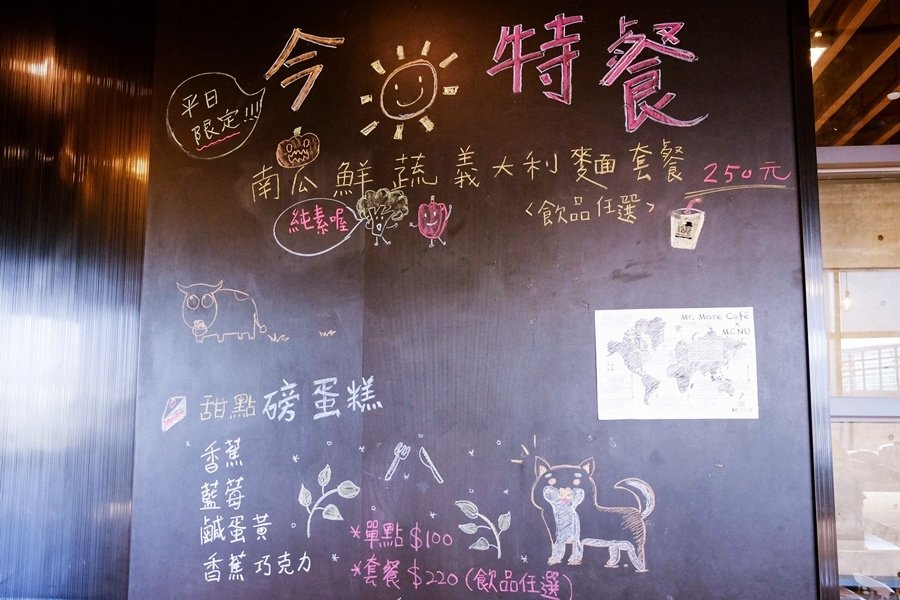 今日特餐
平日
限定!!!!
南瓜鮮蔬義大利麵套餐 250元
<飲品任選>
純素喔
Mr. More Café
MENU
甜點 磅蛋糕
香蕉
藍莓
鹹蛋黃
香蕉巧克力
*單點 $100
*套餐 $220 (飲品任選)